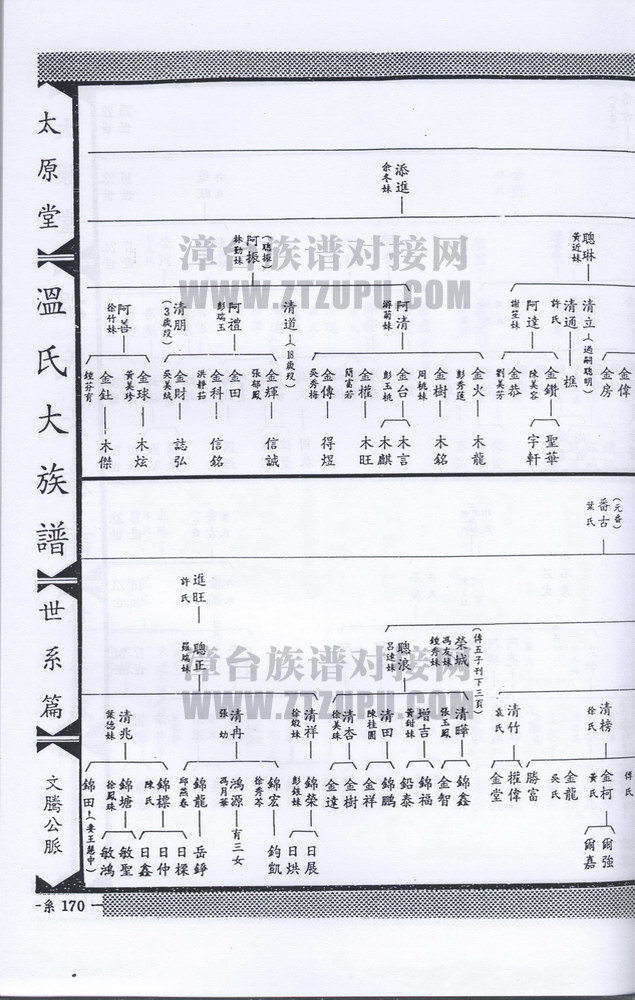 太原堂
溫氏大族譜
世系篇
文騰公脈
-系 170
添進
余冬妹
聰琳
黃近妹
阿振
(聰振)
林勤妹
清立
(過嗣聰明)
清通
許氏
阿達
謝笠妹
阿清
游菊妹
清道
(18歲歿)
阿禮
彭瑞玉
清朋
(3歲歿)
阿善
徐竹妹
金偉
金房
樵
金鑽
陳美容
金恭
劉美芳
金火
彭秀蓮
金樹
周桃妹
金台
彭玉桃
金權
簡富若
金傳
吳秀梅
金輝
張郁鳳
金田
金科
洪靜茹
金財
吳美絨
金球
黃美珍
金釷
鍾芬育
聖華
宇軒
木龍
木銘
木言
木麒
木旺
得煜
信誠
信銘
誌弘
木炫
木傑
番古
(元番)
葉氏
進旺
許氏
榮城
(傳五子刊下三頁)
馮友妹
鍾秀妹
聰浪
呂達妹
聰正
羅瑞妹
清榜
徐氏
清竹
袁氏
清曄
張玉鳳
增吉
黃鉗妹
清田
陳桂圓
清杏
徐美珠
清祥
徐敏妹
清冉
張幼
清兆
葉德妹
傅氏
金柯
黃氏
金龍
吳氏
勝富
權偉
金堂
錦鑫
金智
錦福
鉛泰
錦鵬
金祥
金樹
金達
錦榮
彭銀妹
錦宏
徐秀芩
鴻源
馮月華
錦龍
邱燕春
錦標
陳氏
錦塘
徐鳳珠
錦田
(妻王慧中)
爾強
爾嘉
日展
日烘
鈞凱
有三女
岳錚
日樑
日仲
日鑫
敏聖
敏鴻
漳台族谱对接网
WWW.ZTZUPU.COM
漳台族谱对接网
WWW.ZTZUPU.COM